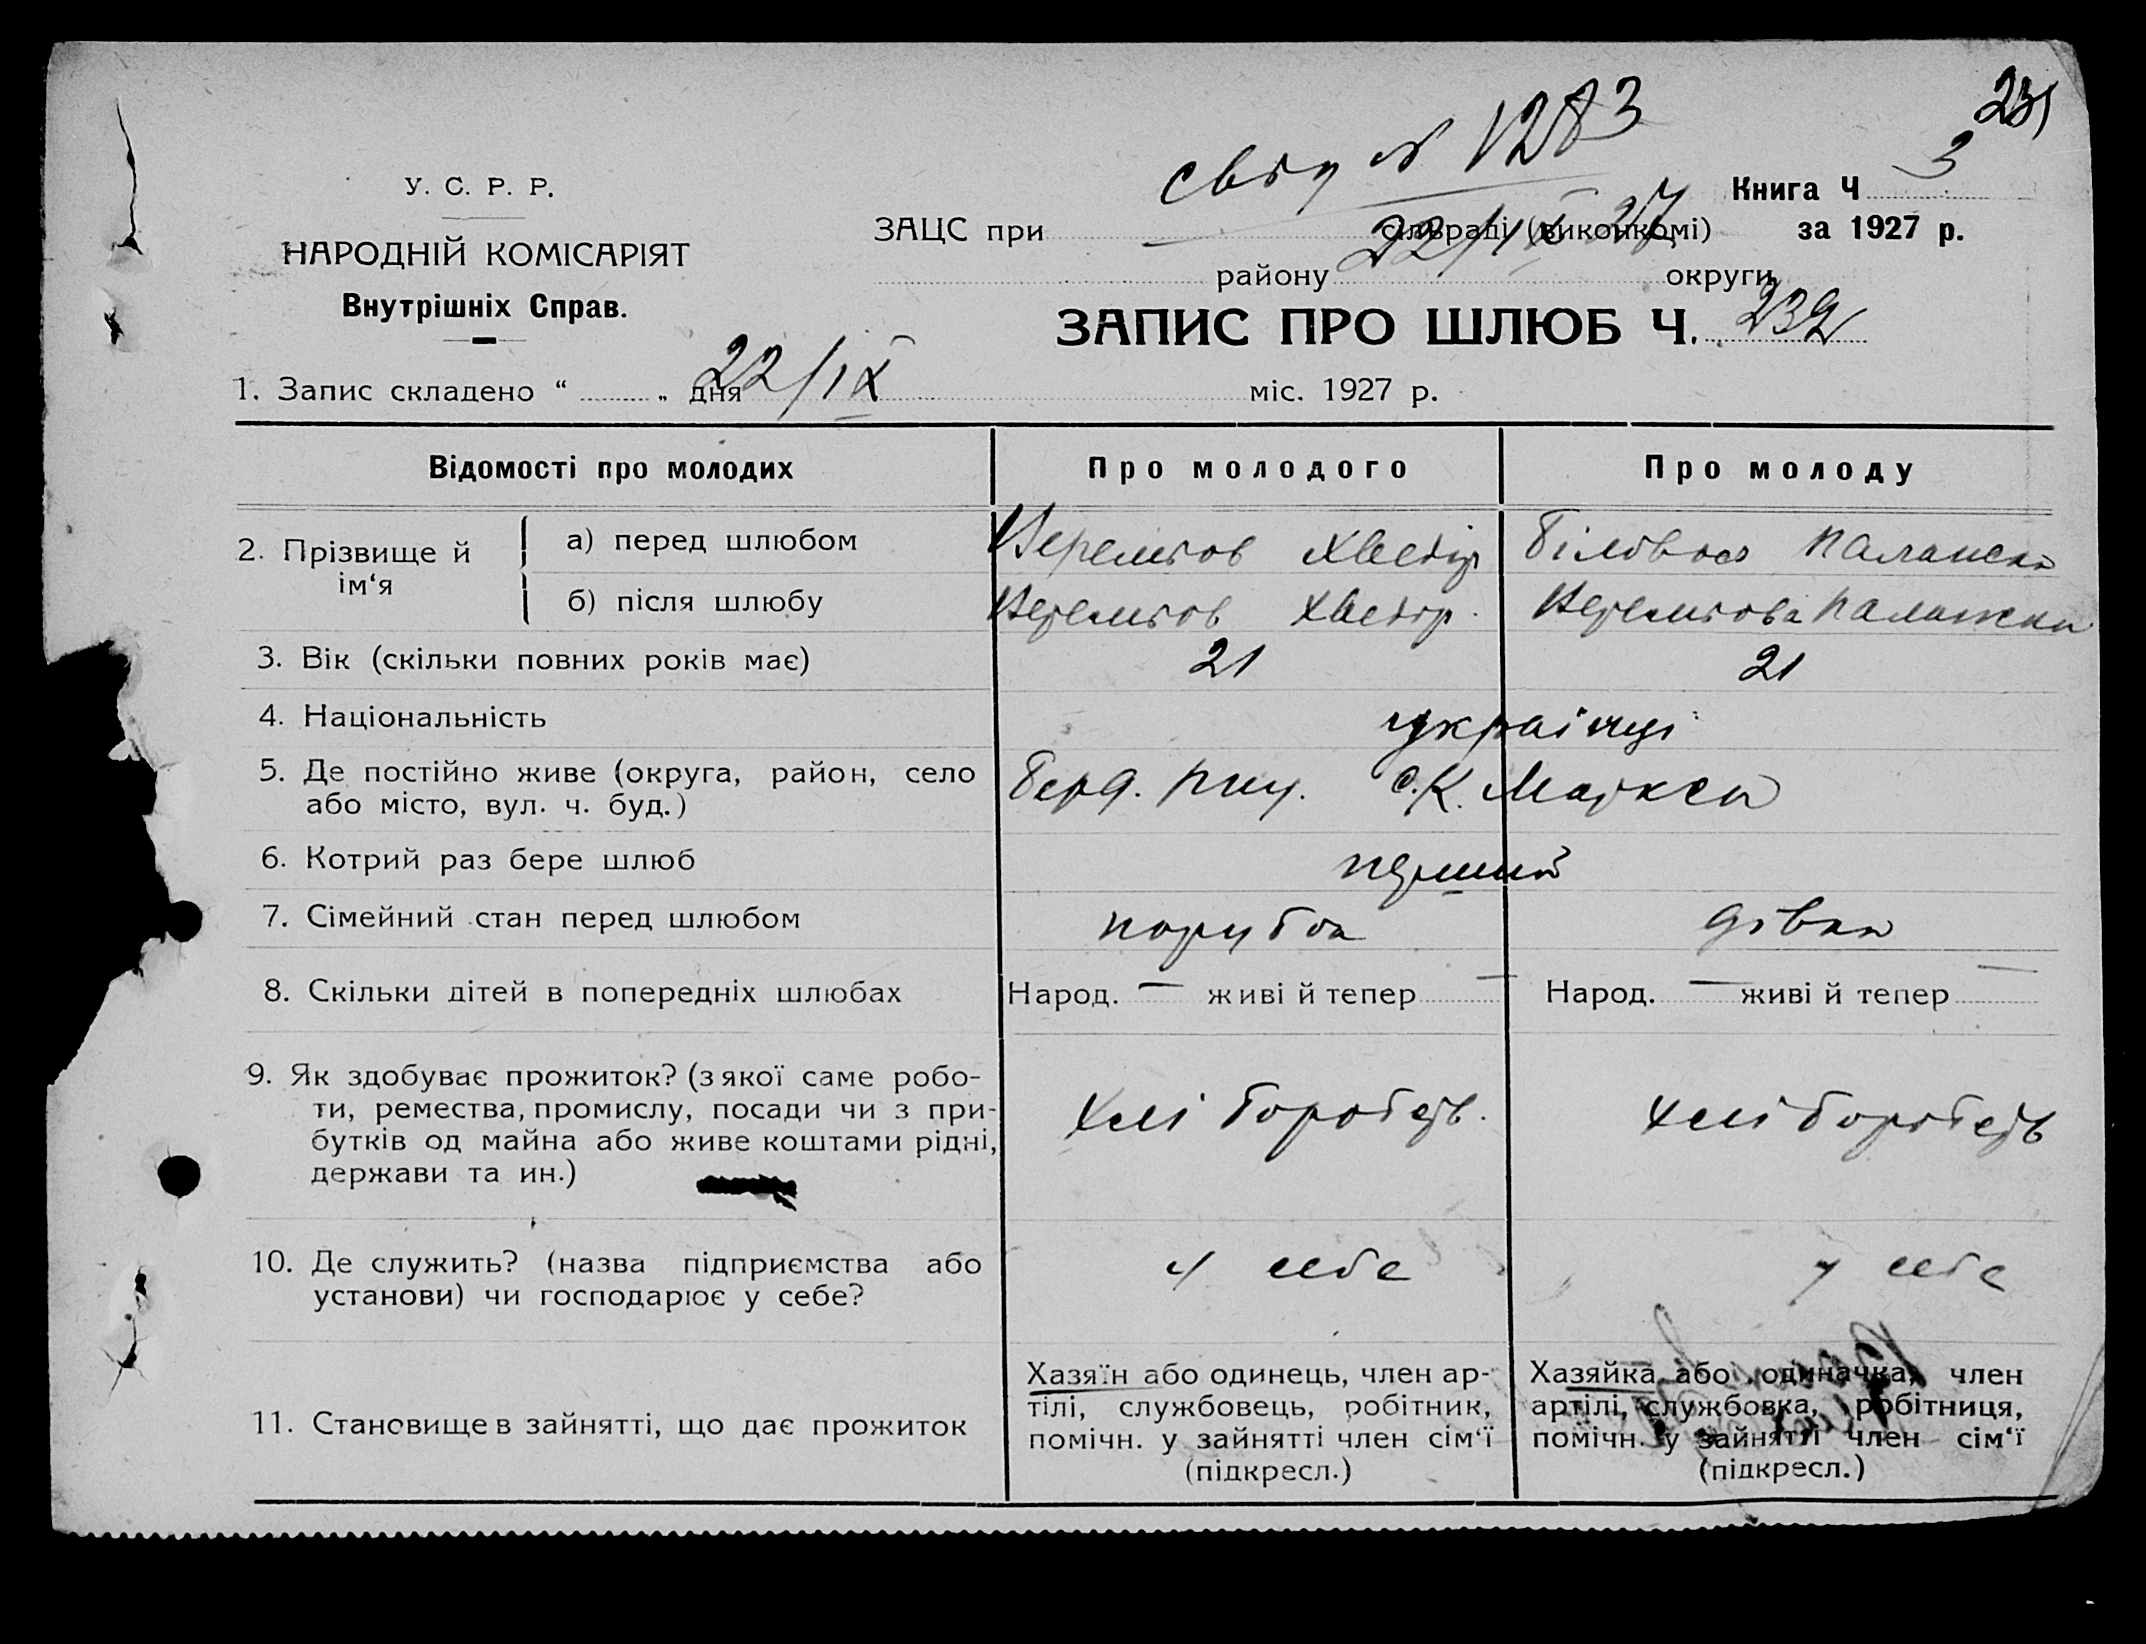 231
Свід № 1283
22/IX 27
У. С. Р. Р.
НАРОДНІЙ КОМІСАРІЯТ
Внутрішніх Справ.
Книга Ч 3
за 1927 р.
ЗАЦС при сільраді (виконкомі)
району округи
ЗАПИС ПРО ШЛЮБ Ч. 239
1. Запис складено “ „ дня 22/IX міс. 1927 р.
Відомості про молодих Про молодого Про молоду
2. Прізвище й ім‘я
а) перед шлюбом Хведір Білоवос Палажка
б) після шлюбу Хведір Палажка
3. Вік (скільки повних років має) 21 21
4. Національність українці
5. Де постійно живе (округа, район, село
або місто, вул. ч. буд.) Берд. рну. с. К. Маркса
6. Котрий раз бере шлюб перший
7. Сімейний стан перед шлюбом парубок дівка
8. Скільки дітей в попередніх шлюбах Народ. — живі й тепер — Народ. — живі й тепер —
9. Як здобуває прожиток? (з якої саме робо-
ти, ремества, промислу, посади чи з при-
бутків од майна або живе коштами рідні,
держави та ин.)
хліборобств. хліборобств
10. Де служить? (назва підприємства або
установи) чи господарює у себе?
у себе у себе
11. Становище в зайнятті, що дає прожиток
Хазяїн або одинець, член ар-
тілі, службовець, робітник,
помічн. у зайнятті член сім‘ї
(підкресл.)
Хазяйка або одиначка, член
артілі, службовка, робітниця,
помічн. у зайнятті член сім‘ї
(підкресл.)